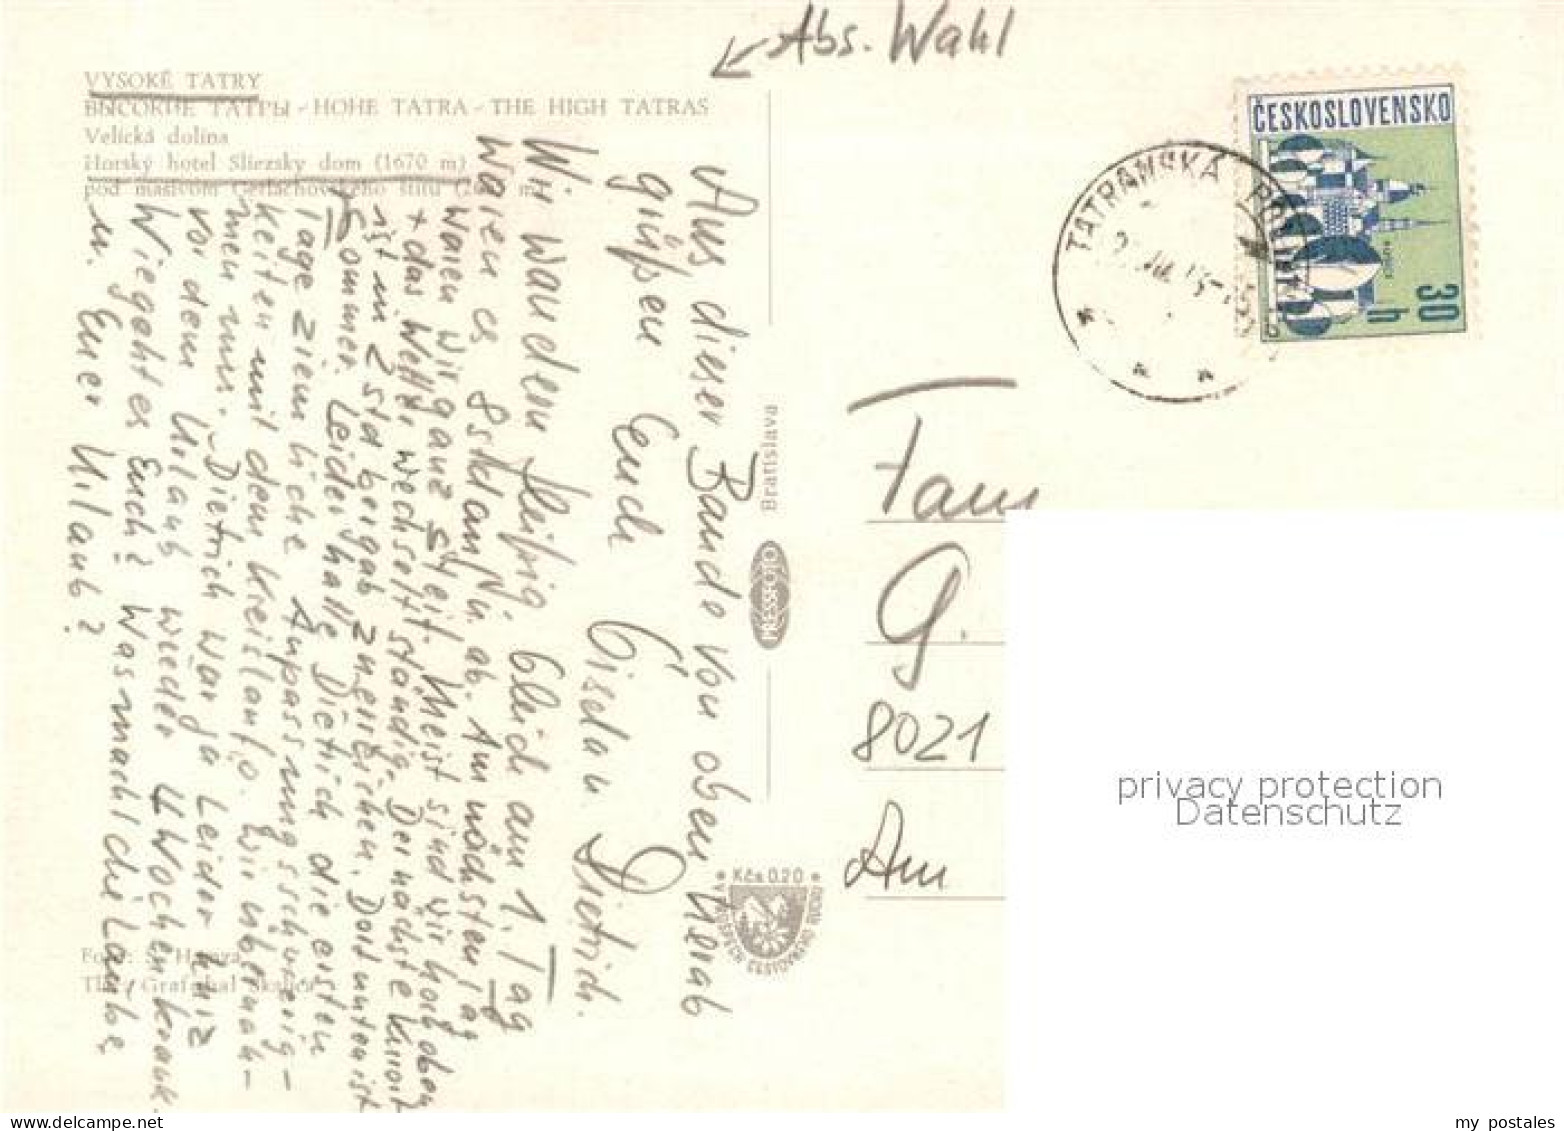 Abs. Wahl
VYSOKÉ TATRY
ВЫСОКИЕ ТАТРЫ - HOHE TATRA - THE HIGH TATRAS
Velická dolina
Horský hotel Sliezsky dom (1670 m)
pod masívom Gerlachovského štítu
Aus dieser Baude von oben herab
grüßen Euch Gisela u. Dietrich.
Wir wandern fleißig. Gleich am 1. Tag
waren es 8 Std auf u. ab. Am nächsten Tag
waren wir ganz steif. Meist sind wir hoch oben
+ das Wetter wechselt ständig. Der nächste Kurort
ist in 2 Std bergab zu erreichen. Dort unten ist
Sommer. Leider hatte Dietrich die ersten
Tage ziemliche Anpassungsschwierig-
keiten mit dem Kreislauf. Wir übernah-
men nun. Dietrich war ja leider kurz
vor dem Urlaub wieder Wochen krank.
Wie geht es Euch? Was macht die Laube
u. Euer Urlaub?
Foto:
Tlač: Grafobal Skalica
Bratislava
PRESSFOTO
Kčs 0.20
ČESKOSLOVENSKO
30 h
TATRANSKÁ
Fam
G.
8021
Am
privacy protection
Datenschutz
my postales
www.delcampe.net